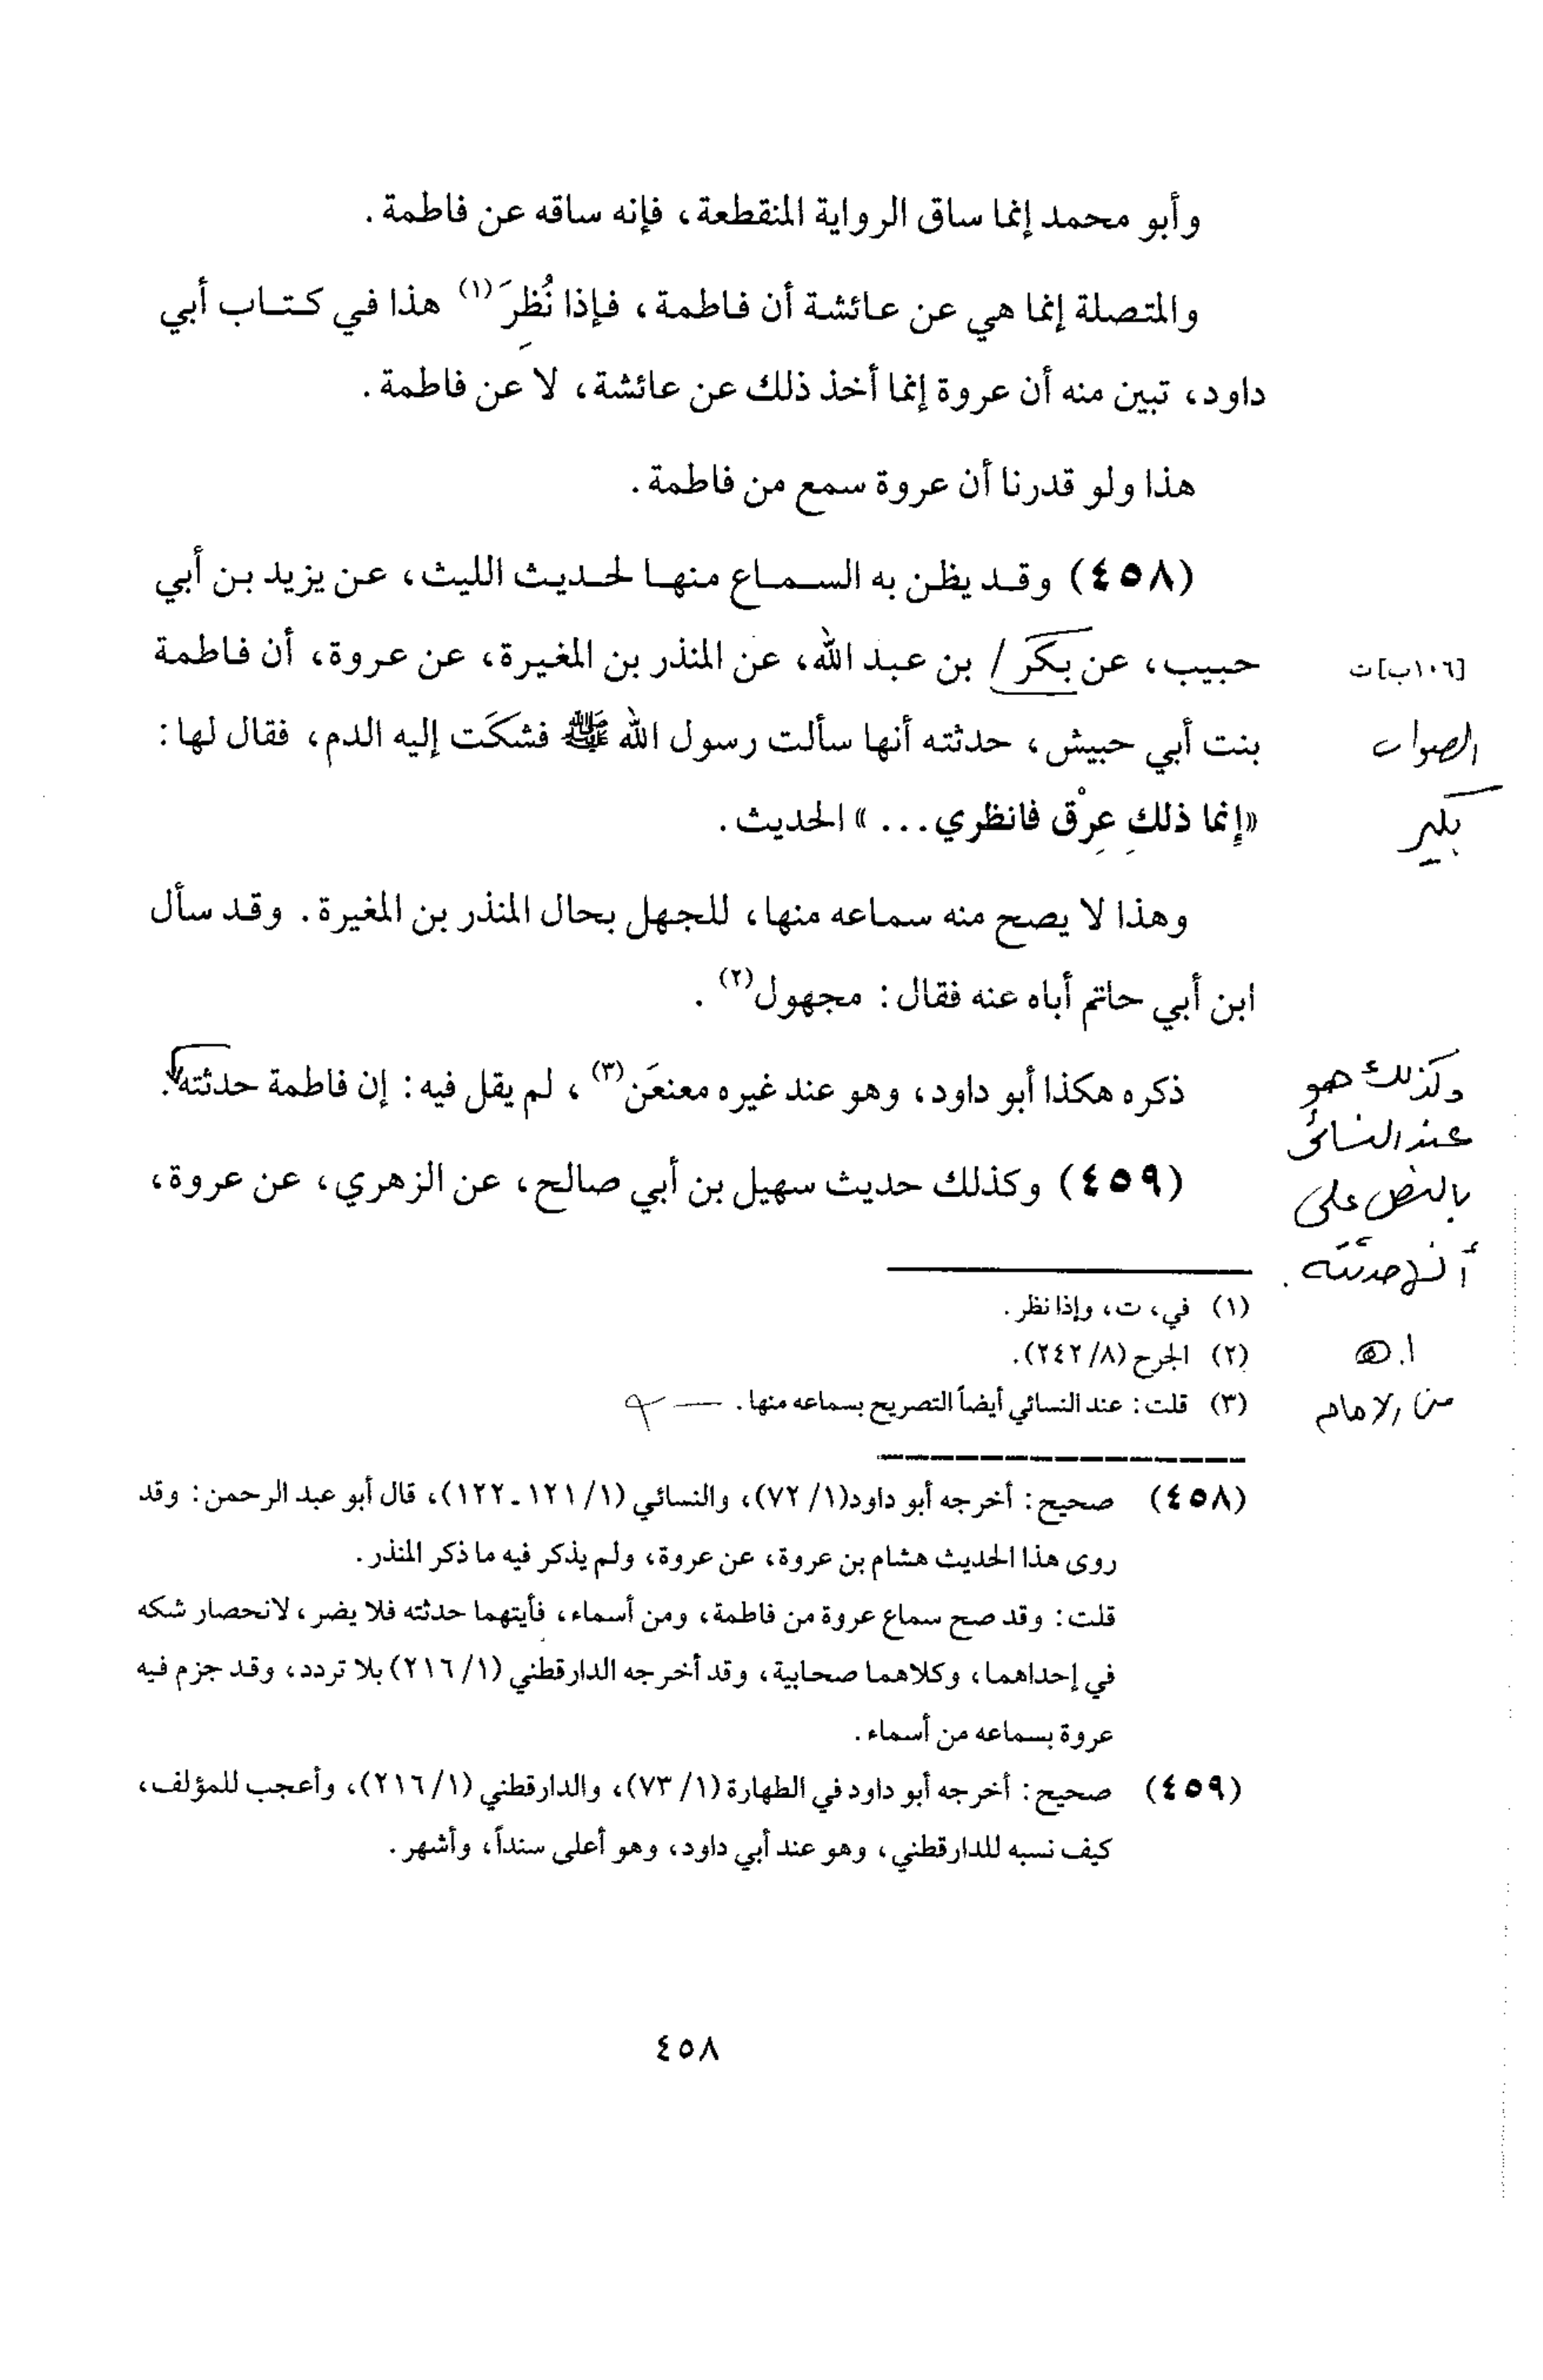 وأبو محمد إنما ساق الرواية المنقطعة، فإنه ساقه عن فاطمة.
والمتصلة إنما هي عن عائشة أن فاطمة، فإذا نُظِرَ (١) هذا في كتاب أبي
داود، تبين منه أن عروة إنما أخذ ذلك عن عائشة، لا عن فاطمة.
هذا ولو قدرنا أن عروة سمع من فاطمة.
(٤٥٨) وقد يظن به السماع منها لحديث الليث، عن يزيد بن أبي
حبيب، عن بكر / بن عبد الله، عن المنذر بن المغيرة، عن عروة، أن فاطمة
[١٠٦ب] ت
بنت أبي حبيش، حدثته أنها سألت رسول الله ﷺ فشكَت إليه الدم، فقال لها:
الصواب
«إنما ذلكِ عِرْق فانظري... » الحديث.
بكير
وهذا لا يصح منه سماعه منها، للجهل بحال المنذر بن المغيرة. وقد سأل
ابن أبي حاتم أباه عنه فقال: مجهول (٢).
ذكره هكذا أبو داود، وهو عند غيره معنعَن (٣)، لم يقل فيه: إن فاطمة حدثته.
وكذلك هو
عند النسائي
(٤٥٩) وكذلك حديث سهيل بن أبي صالح، عن الزهري، عن عروة،
بالنص على
أنها حدثته.
(١) في، ت، وإذا نظر.
(٢) الجرح (٨/ ٢٤٢).
ا.هـ
(٣) قلت: عند النسائي أيضاً التصريح بسماعه منها.
من الامام
(٤٥٨) صحيح: أخرجه أبو داود(١/ ٧٢)، والنسائي (١/ ١٢١ـ ١٢٢)، قال أبو عبد الرحمن: وقد
روى هذا الحديث هشام بن عروة، عن عروة، ولم يذكر فيه ما ذكر المنذر.
قلت: وقد صح سماع عروة من فاطمة، ومن أسماء، فأيتهما حدثته فلا يضر، لانحصار شكه
في إحداهما، وكلاهما صحابية، وقد أخرجه الدارقطني (١/ ٢١٦) بلا تردد، وقد جزم فيه
عروة بسماعه من أسماء.
(٤٥٩) صحيح: أخرجه أبو داود في الطهارة (١/ ٧٣)، والدارقطني (١/ ٢١٦)، وأعجب للمؤلف،
كيف نسبه للدارقطني، وهو عند أبي داود، وهو أعلى سنداً، وأشهر.
٤٥٨